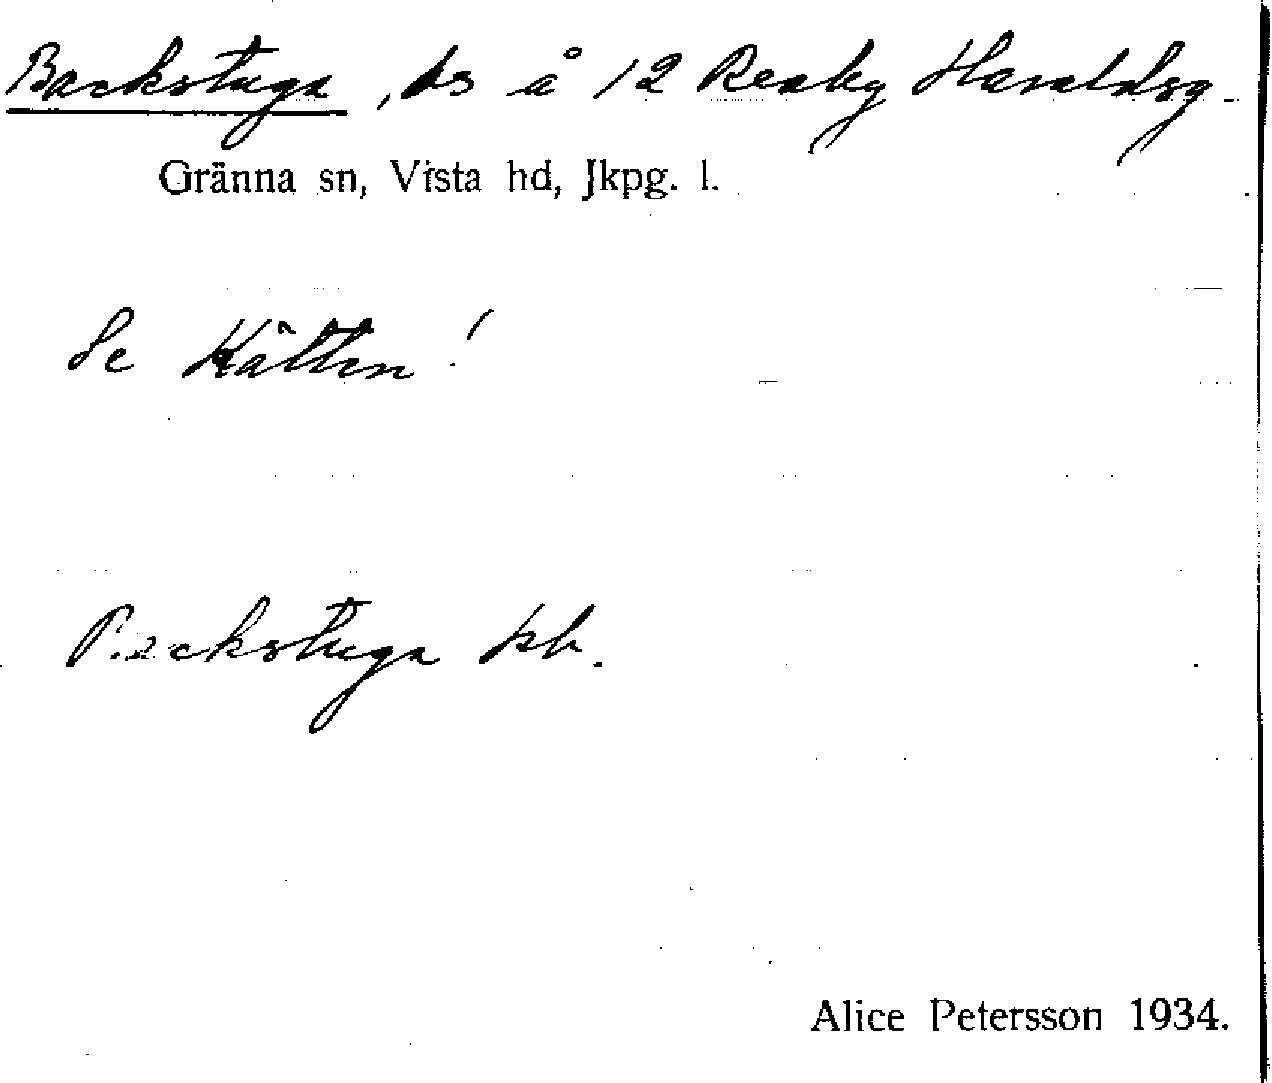 Backstuga, bs å 12 Reaby Haraldsg.
Gränna sn, Vista hd, Jkpg. l.
Se Kätten!
Backstuga kb.
Alice Petersson 1934.